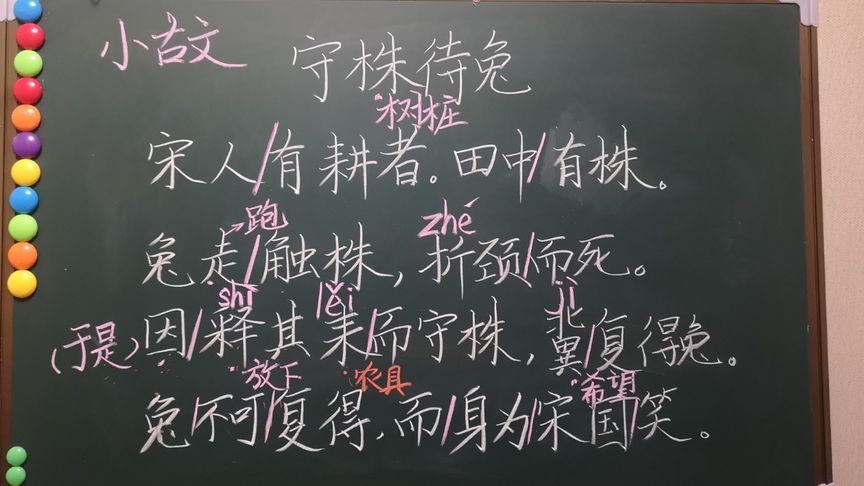 小古文 守株待兔
树桩
宋人/有耕者。田中/有株。
跑 zhé
兔走/触株，折颈/而死。
shì lěi jì
(于是)因/释其耒/而守株，冀/复得兔。
放下 农具 希望
兔/不可/复得，而/身为/宋国/笑。